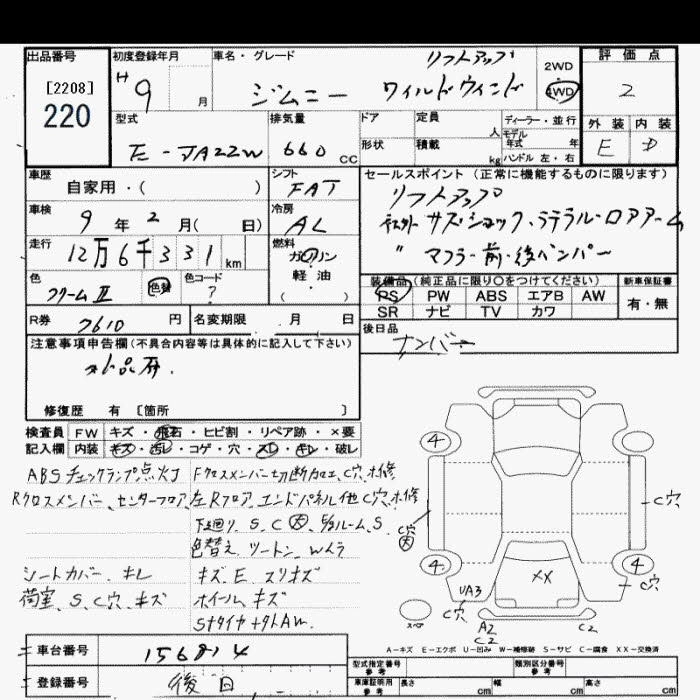 出品番号
[2208]
220
初度登録年月
H9 月
車名・グレード
リフトアップ
ジムニー ワイルドウィンド
2WD
4WD
評価点
2
外装 内装
E D
型式
E-JA22W
排気量
660 CC
ドア
形状
定員 人
積載 kg
ディーラー・並行
モデル年式 年
ハンドル 左・右
車歴
自家用・( )
シフト
FAT
車検
9年2月( 日)
冷房
AC
走行
12万6千331km
燃料
ガソリン
軽油
( )
色
クリームⅡ
色替
色コード
?
R券
7610円
名変期限 月 日
セールスポイント (正常に機能するものに限ります)
リフトアップ
社外 サス・ショック・ラテラル・ロアアーム
〃 マフラー・前・後バンパー
装備品(純正品に限り○をつけてください)
PS PW ABS エアB AW
SR ナビ TV カワ
新車保証書
有・無
後日品
ナンバー
注意事項申告欄(不具合内容等は具体的に記入して下さい)
修復歴 有 [箇所 ]
検査員記入欄
FW キズ・飛石・ヒビ割・リペア跡・×要
内装 キズ・汚レ・コゲ・穴・スレ・キレ・破レ
ABSチェックランプ点灯
Fクロスメンバー切断加工、C穴、補修
Rクロスメンバー、センターフロア、左Rフロア、エンドパネル他C穴、補修
下廻り、S、C大、E/gルーム、S
色替え、ツートン、Wムラ
シートカバー、キレ
キズ、E、スリキズ
荷室、S、C穴、キズ
ホイール、キズ
Sナタイヤ+外AW
4
4
4
C穴
大
C穴
C穴
UA3
C穴
XX
A2
C2
C2
A-キズ E-エクボ U-凹み W-補修跡 S-サビ C-腐食 XX-交換済
車台番号
156814
登録番号
後日
型式指定番号
参考
類別区分番号
参考
車庫証明用
参考
長さ cm
幅 cm
高さ cm